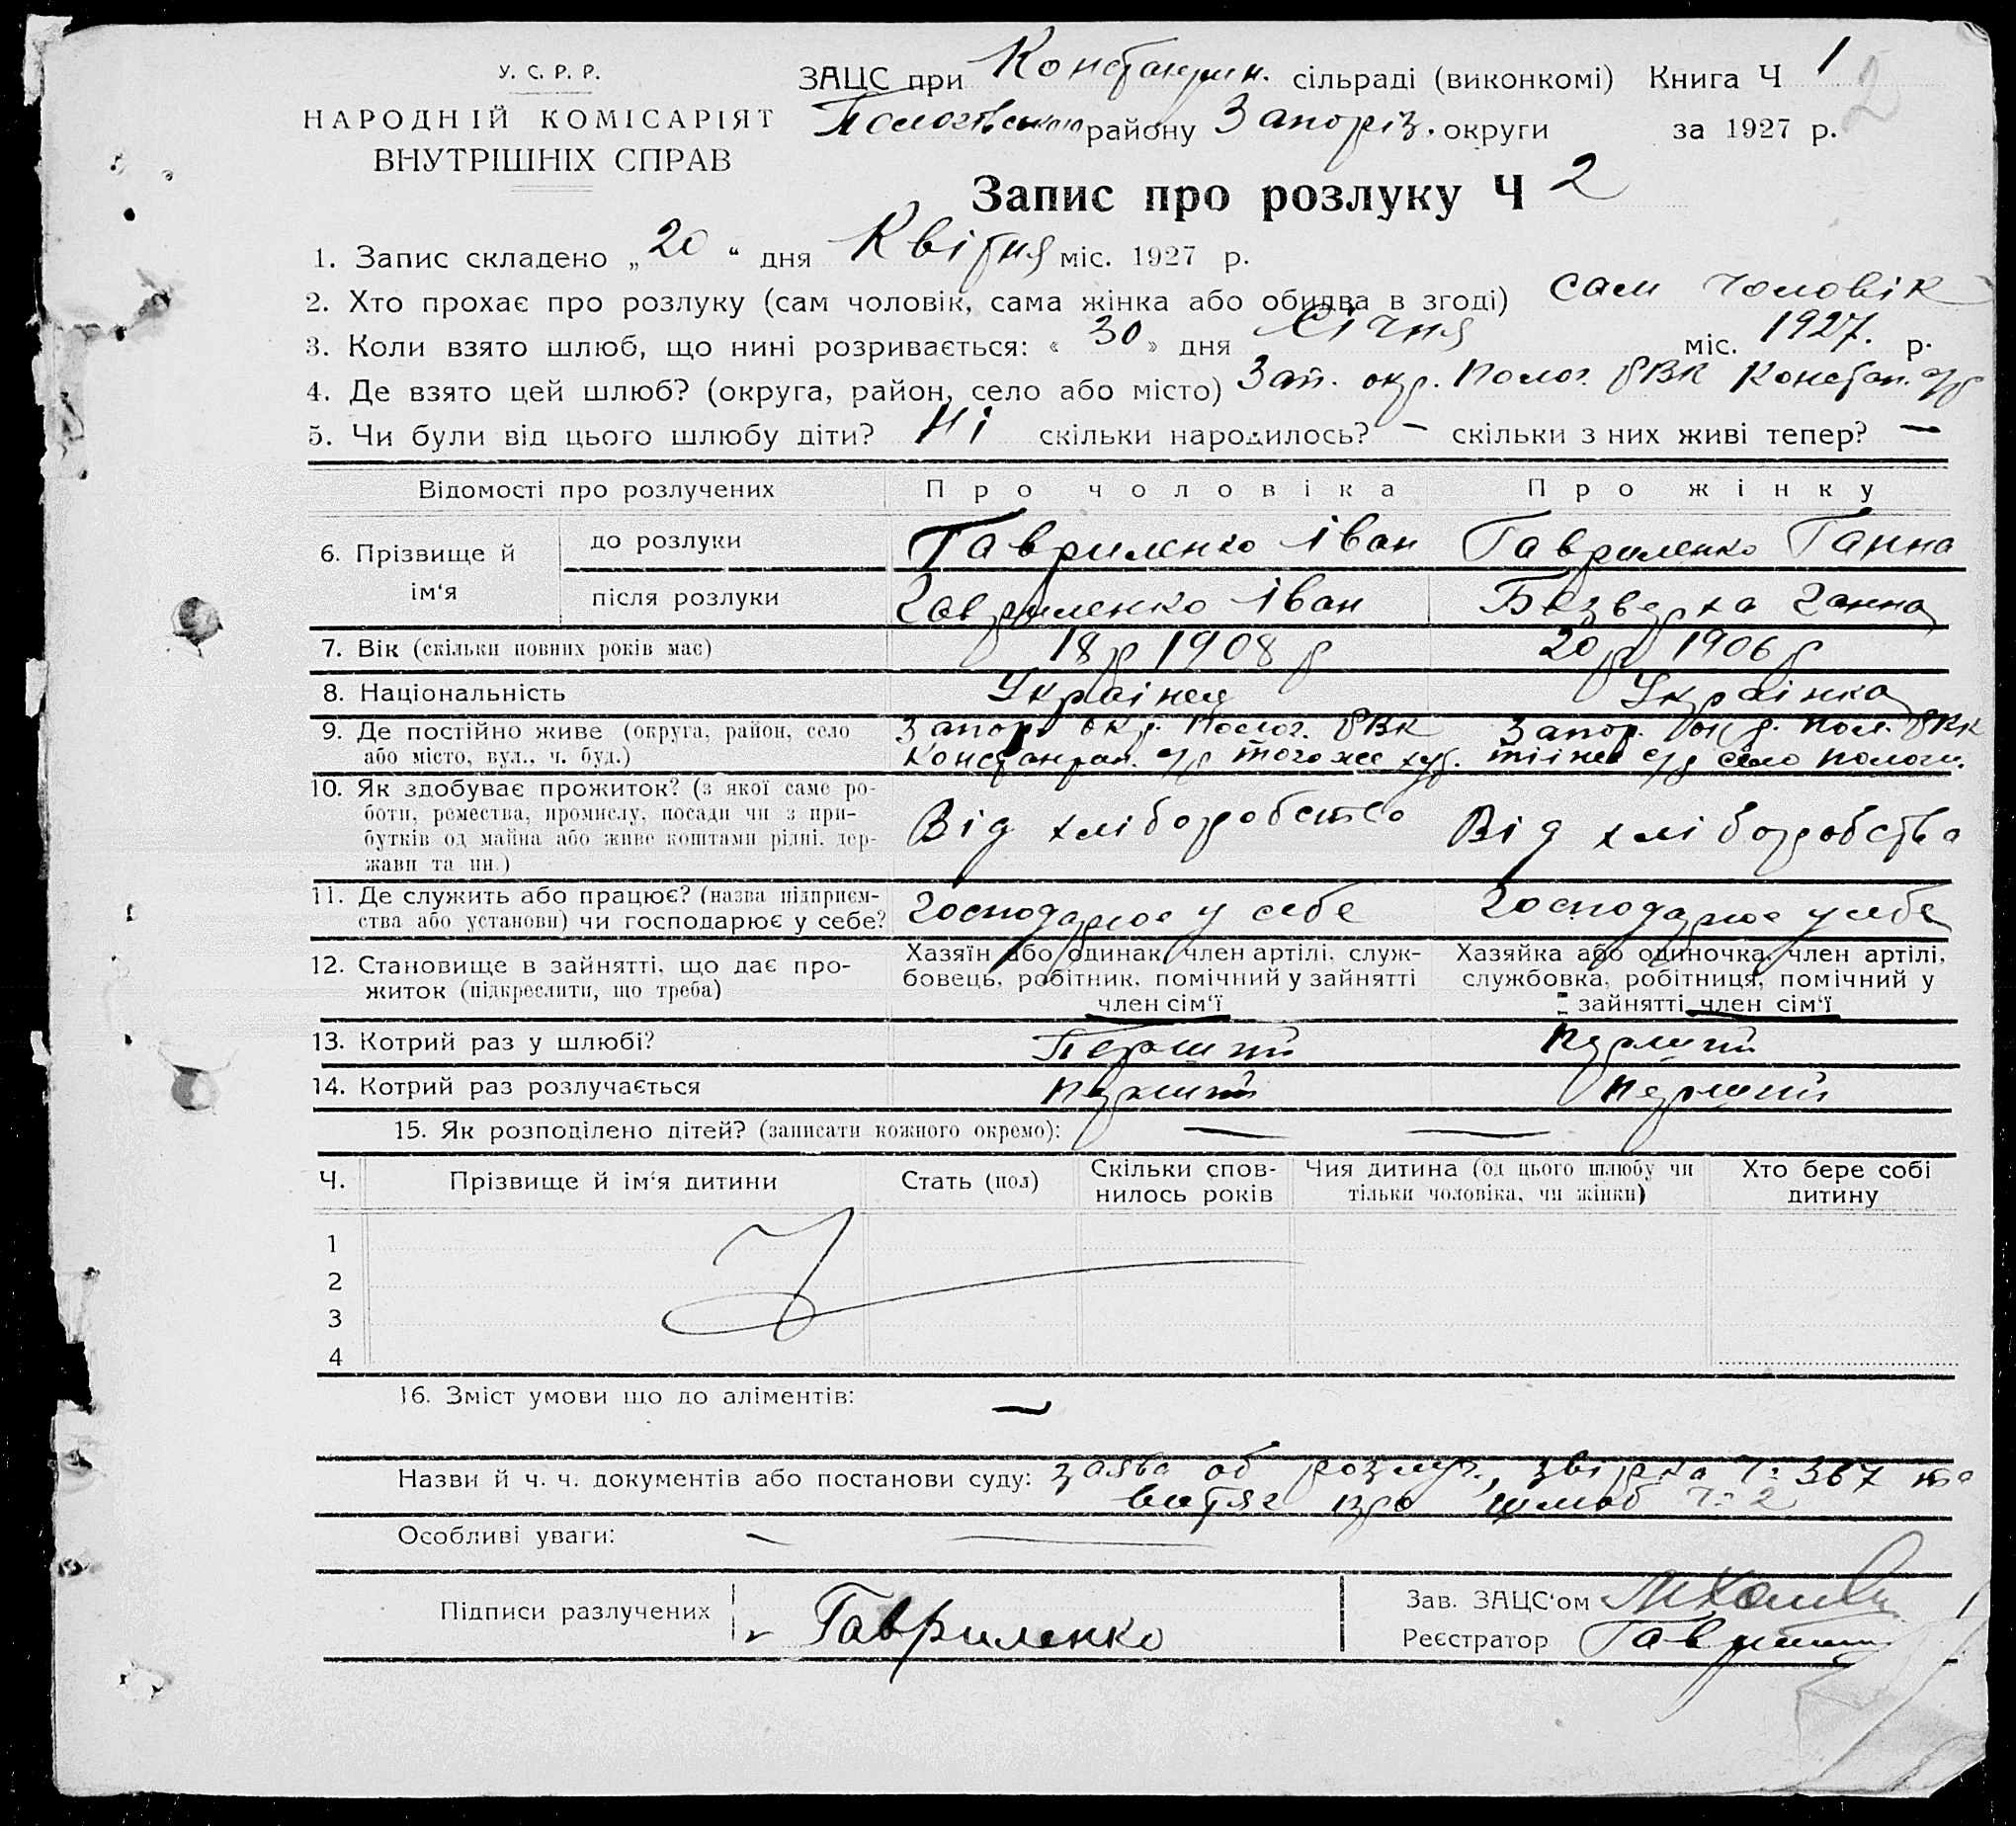 У. С. Р. Р.
НАРОДНІЙ КОМІСАРІЯТ
ВНУТРІШНІХ СПРАВ
ЗАЦС при Константин. сільраді (виконкомі) Книга Ч 1
2
Пологівського району Запоріз. округи за 1927 р.
Запис про розлуку Ч 2
1. Запис складено „20“ дня Квітня міс. 1927 р.
2. Хто прохає про розлуку (сам чоловік, сама жінка або обидва в згоді) сам чоловік
3. Коли взято шлюб, що нині розривається: «30» дня Січня міс. 1927. р.
4. Де взято цей шлюб? (округа, район, село або місто) Зап. окр. Полог. РВК Констан. с/р
5. Чи були від цього шлюбу діти? Ні скільки народилось? — скільки з них живі тепер? —
Відомості про розлучених Про чоловіка Про жінку
6. Прізвище й ім‘я до розлуки Гавриленко Іван Гавриленко Ганна
після розлуки Гавриленко Іван Безверха Ганна
7. Вік (скільки повних років має) 18 р 1908 р 20 р 1906 р
8. Національність Українец Українка
9. Де постійно живе (округа, район, село Запор. окр. Полог. РВК Запор. окр. Пол. РВК
або місто, вул., ч. буд.) с/р того же хут. с/р село Пологи.
10. Як здобуває прожиток? (з якої саме ро-
боти, ремества, промислу, посади чи з при-
бутків од майна або живе коштами рідні, дер-
жави та ин.) Від хліборобства Від хліборобства
11. Де служить або працює? (назва підприєм-
ства або установи) чи господарює у себе? Господарює у себе Господарює у себе
12. Становище в зайнятті, що дає про-
житок (підкреслити, що треба)
Хазяїн або одинак, член артілі, служ-
бовець, робітник, помічний у зайнятті
член сім‘ї
Хазяйка або одиночка, член артілі,
службовка, робітниця, помічний у
зайнятті член сім‘ї
13. Котрий раз у шлюбі? Перший Перший
14. Котрий раз розлучається Перший Перший
15. Як розподілено дітей? (записати кожного окремо): — —
Ч. Прізвище й ім‘я дитини Стать (пол) Скільки спов-
нилось років Чия дитина (од цього шлюбу чи
тільки чоловіка, чи жінки) Хто бере собі
дитину
1
2
3
4
16. Зміст умови що до аліментів: —
Назви й ч. ч. документів або постанови суду: заява об розлуч., звірка Ч: 367 та
витяг про шлюб Ч: 2
Особливі уваги: — —
Підписи разлучених Гавриленко
Зав. ЗАЦС‘ом
Реєстратор